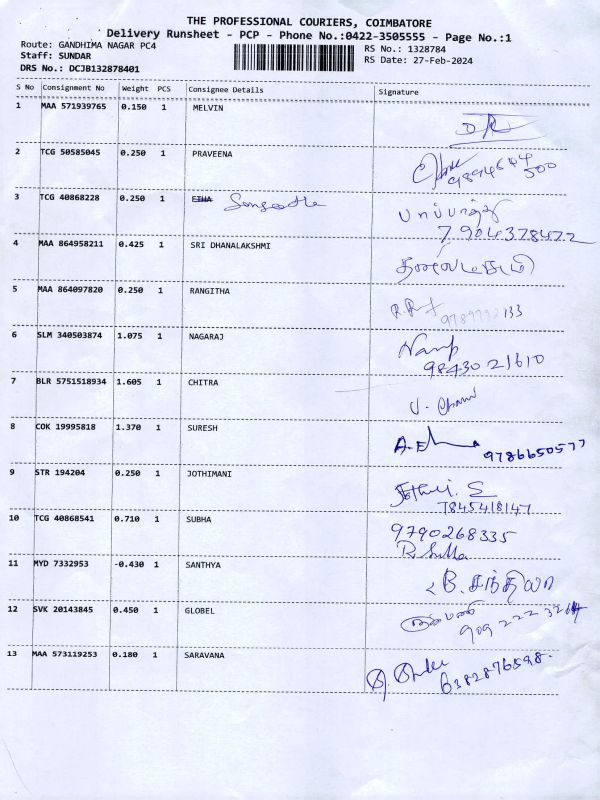 THE PROFESSIONAL COURIERS, COIMBATORE
Delivery Runsheet - PCP - Phone No.:0422-3505555 - Page No.:1
Route: GANDHIMA NAGAR PC4 RS No.: 1328784
Staff: SUNDAR RS Date: 27-Feb-2024
DRS No.: DCJB132878401
S No Consignment No Weight PCS Consignee Details Signature
1 MAA 571939765 0.150 1 MELVIN
2 TCG 50585045 0.250 1 PRAVEENA
3 TCG 40868228 0.250 1 ETHA Sangeetha
7904378472
4 MAA 864958211 0.425 1 SRI DHANALAKSHMI
5 MAA 864097820 0.250 1 RANGITHA
6 SLM 340503874 1.075 1 NAGARAJ
98430 21610
7 BLR 5751518934 1.605 1 CHITRA
8 COK 19995818 1.370 1 SURESH
9786650577
9 STR 194204 0.250 1 JOTHIMANI
7845418147
10 TCG 40868541 0.710 1 SUBHA 9790268335
R. Subha
11 MYD 7332953 -0.430 1 SANTHYA B. சந்தியா
12 SVK 20143845 0.450 1 GLOBEL
13 MAA 573119253 0.180 1 SARAVANA
6382876598